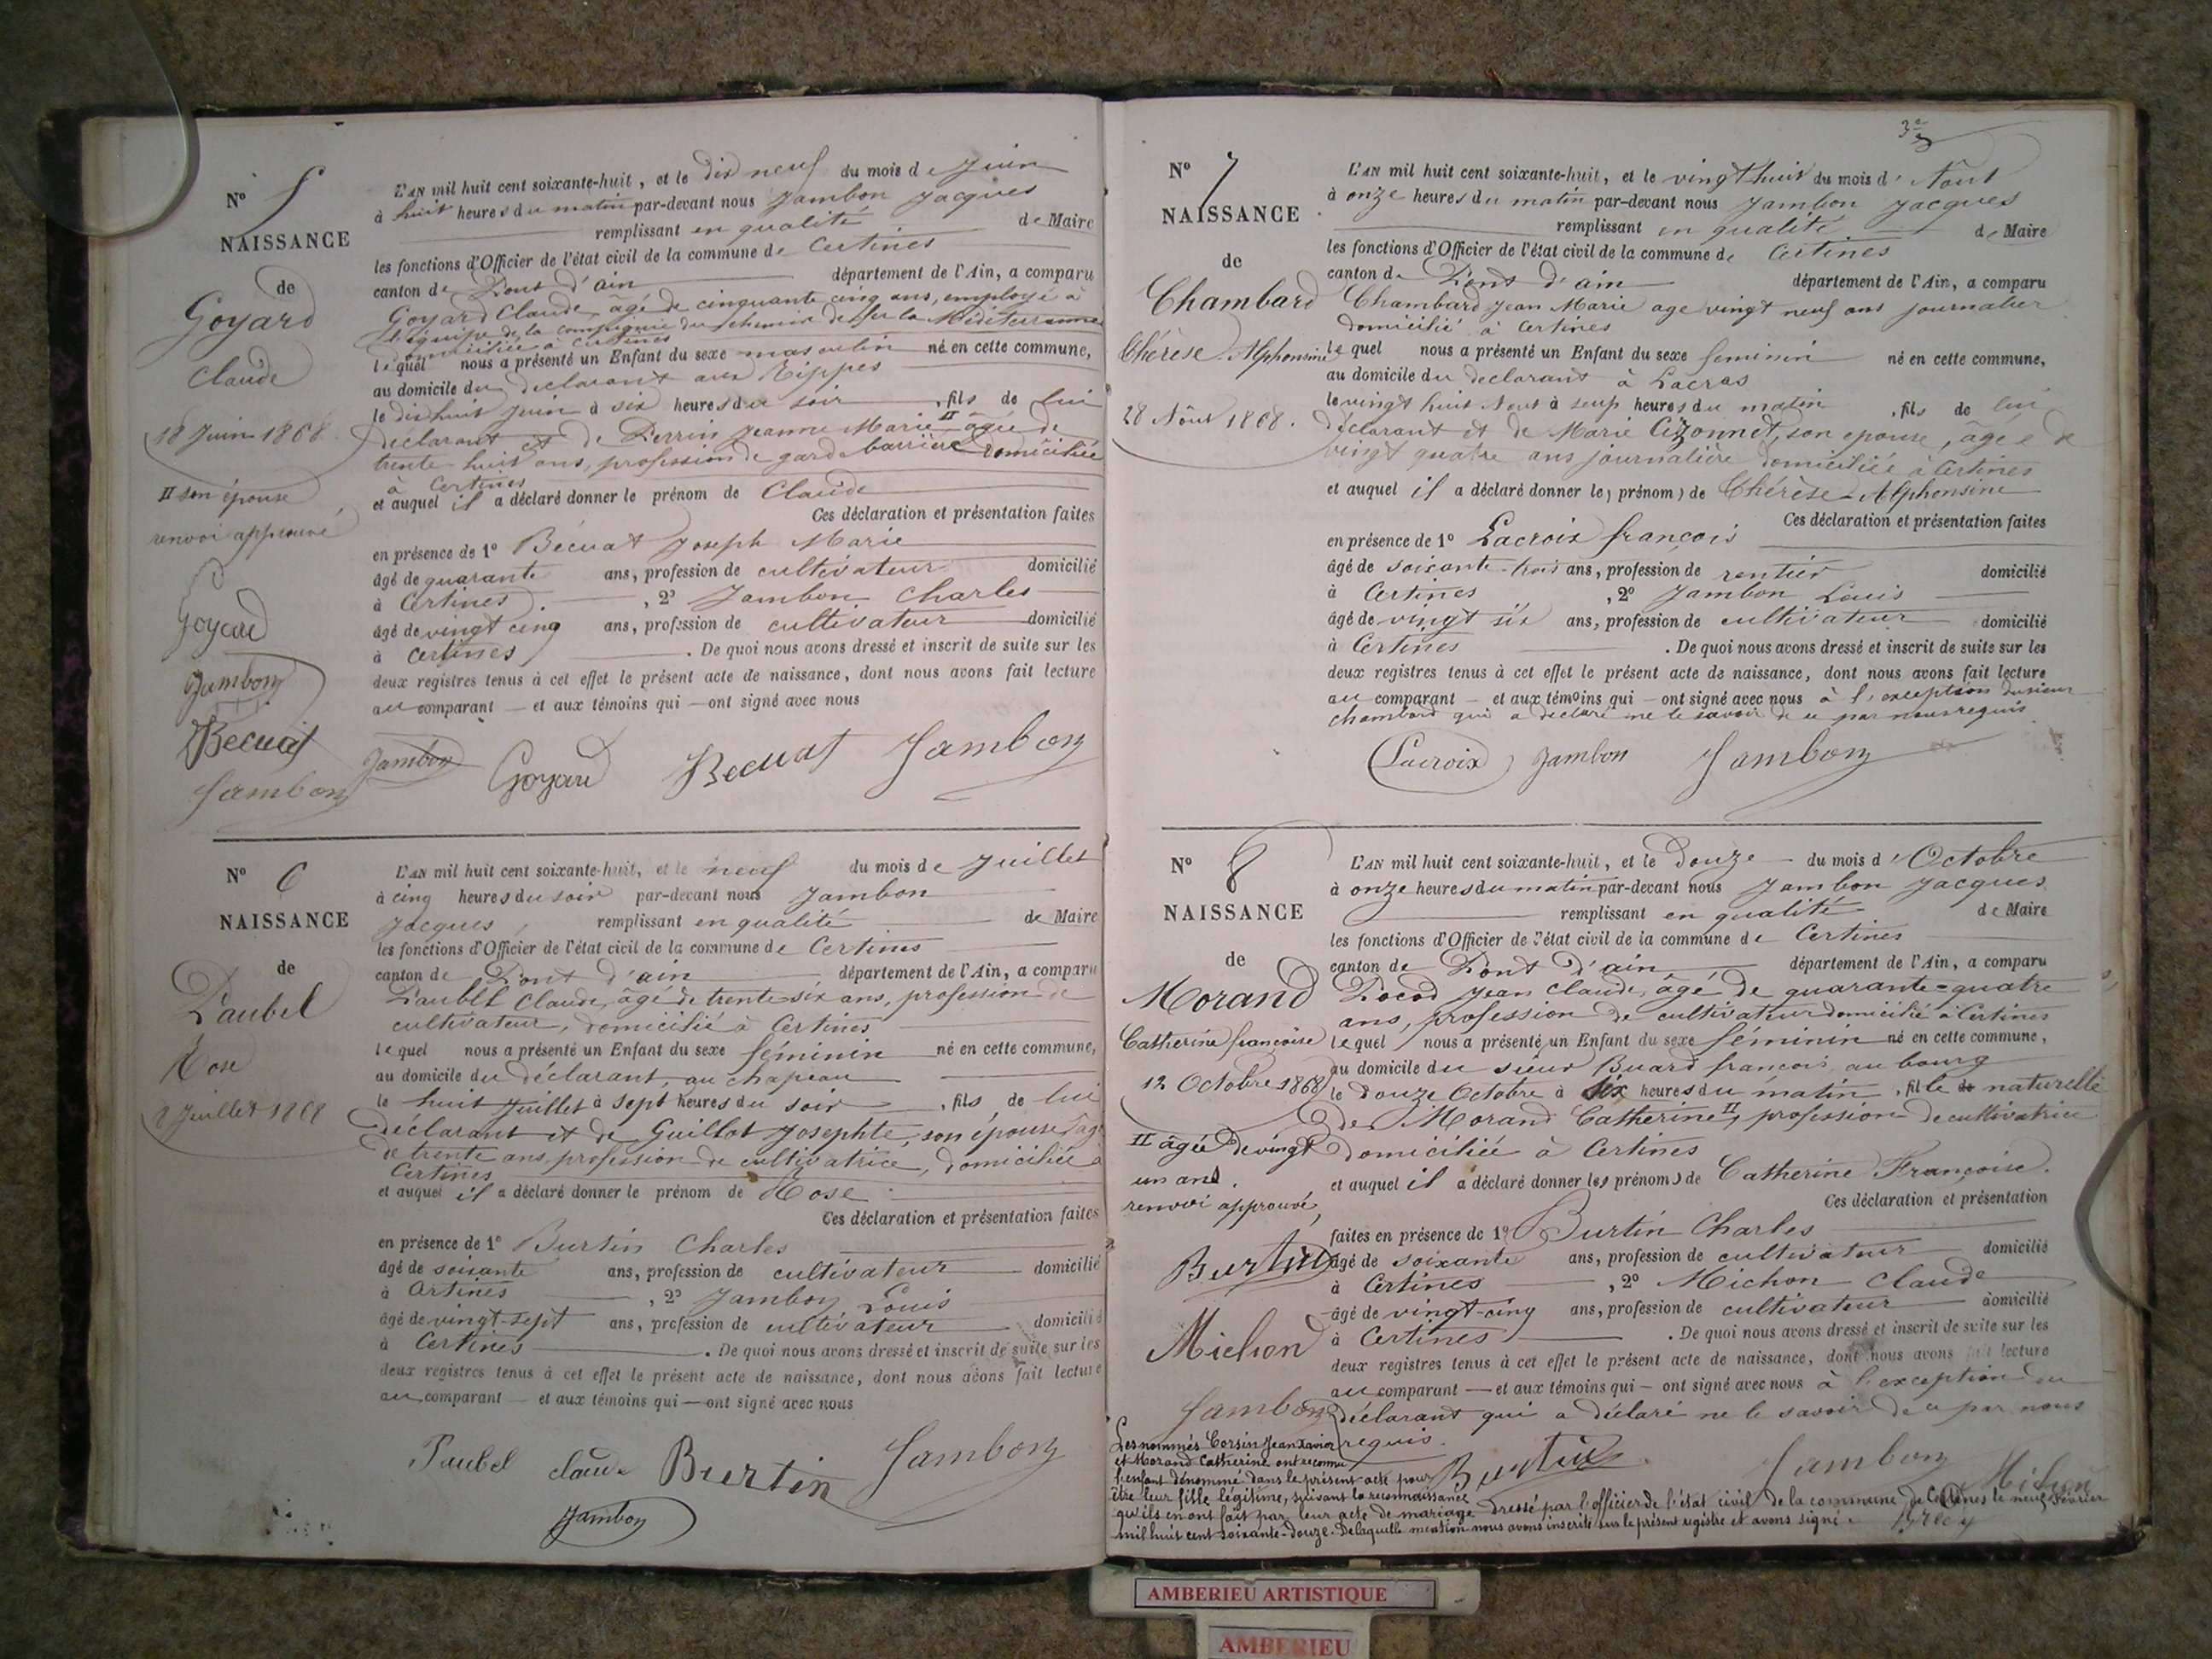 N° 5
NAISSANCE
de
Goyard
Claude
18 Juin 1868
II son épouse
renvoi approuvé
Goyard
Jambon
Becuat
Jambon
L'AN mil huit cent soixante-huit, et le dix neuf du mois de Juin
à huit heures du matin par-devant nous Jambon Jacques
remplissant en qualité de Maire
les fonctions d'Officier de l'état civil de la commune de Certines
canton de Pont d'ain département de l'Ain, a comparu
Goyard Claude, âgé de cinquante cinq ans, employé à
l'équipe de la compagnie du chemin de fer la Méditerranné
domicilié à Certines
lequel nous a présenté un Enfant du sexe masculin né en cette commune,
au domicile du declarant aux Rippes
le dix huit Juin à six heures du soir, fils de lui
declarant et de Perrin Jeanne Marie II âgée de
trente-huit ans, profession de garde barrière domiciliée
à Certines
et auquel il a déclaré donner le prénom de Claude
Ces déclaration et présentation faites
en présence de 1° Bécuat Joseph Marie
âgé de quarante ans, profession de cultivateur domicilié
à Certines, 2° Jambon Charles
âgé de vingt cinq ans, profession de cultivateur domicilié
à Certines. De quoi nous avons dressé et inscrit de suite sur les
deux registres tenus à cet effet le présent acte de naissance, dont nous avons fait lecture
au comparant — et aux témoins qui — ont signé avec nous
Jambon Goyard Becuat Jambon
N° 6
NAISSANCE
de
Paubel
Rose
8 Juillet 1868
L'AN mil huit cent soixante-huit, et le neuf du mois de Juillet
à cinq heures du soir par-devant nous Jambon
Jacques, remplissant en qualité de Maire
les fonctions d'Officier de l'état civil de la commune de Certines
canton de Pont d'ain département de l'Ain, a comparu
Paubel Claude, âgé de trente six ans, profession de
cultivateur, domicilié à Certines
lequel nous a présenté un Enfant du sexe féminin né en cette commune,
au domicile du déclarant, au chapeau
le huit Juillet à sept heures du soir, fils de lui
déclarant et de Guillot Josephte, son épouse, âgé
de trente ans, profession de cultivatrice, domiciliée à
Certines
et auquel il a déclaré donner le prénom de Rose
Ces déclaration et présentation faites
en présence de 1° Burtin Charles
âgé de soixante ans, profession de cultivateur domicilié
à Certines, 2° Jambon Louis
âgé de vingt-sept ans, profession de cultivateur domicilié
à Certines. De quoi nous avons dressé et inscrit de suite sur les
deux registres tenus à cet effet le présent acte de naissance, dont nous avons fait lecture
au comparant — et aux témoins qui — ont signé avec nous
Paubel claude Burtin Jambon
Jambon
3e
N° 7
NAISSANCE
de
Chambard
Thérèse Alphonsine
28 Aôut 1868.
L'AN mil huit cent soixante-huit, et le vingt huit du mois d'Aout
à onze heures du matin par-devant nous Jambon Jacques
remplissant en qualité de Maire
les fonctions d'Officier de l'état civil de la commune de Certines
canton de Pont d'ain département de l'Ain, a comparu
Chambard Jean Marie age vingt neuf ans journalier
domicilié à Certines
lequel nous a présenté un Enfant du sexe feminin né en cette commune,
au domicile du declarant à Lacras
le vingt huit Aout à sept heures du matin, fils de lui
déclarant et de Marie Cizonnet, son epouse, âgée de
vingt quatre ans journalière domiciliée à Certines
et auquel il a déclaré donner les prénoms de Thérèse-Alphonsine
Ces déclaration et présentation faites
en présence de 1° Lacroix françois
âgé de soixante-trois ans, profession de rentier domicilié
à Certines, 2° Jambon Louis
âgé de vingt six ans, profession de cultivateur domicilié
à Certines. De quoi nous avons dressé et inscrit de suite sur les
deux registres tenus à cet effet le présent acte de naissance, dont nous avons fait lecture
au comparant — et aux témoins qui — ont signé avec nous à l'exception du sieur
chambard qui a declaré ne le savoir de ce par nous requis
Lacroix Jambon Jambon
N° 8
NAISSANCE
de
Morand
Catherine françoise
12 Octobre 1868
II âgée de vingt
un ans.
renvoi approuvé,
Burtin
Michon
Jambon
L'AN mil huit cent soixante-huit, et le Douze du mois d'Octobre
à onze heures du matin par-devant nous Jambon Jacques
remplissant en qualité de Maire
les fonctions d'Officier de l'état civil de la commune de Certines
canton de Pont d'ain département de l'Ain, a comparu
Pocod Jean Claude, âgé de quarante-quatre
ans, profession de cultivateur domicilié à Certines
lequel nous a présenté un Enfant du sexe féminin né en cette commune,
au domicile du sieur Buard françois au bourg
le douze Octobre à six heures du matin, fille naturelle
de Morand Catherine II, profession de cultivatrice
domiciliée à Certines
et auquel il a déclaré donner les prénoms de Catherine Françoise.
Ces déclaration et présentation
faites en présence de 1° Burtin Charles
âgé de soixante ans, profession de cultivateur domicilié
à Certines, 2° Michon Claude
âgé de vingt-cinq ans, profession de cultivateur domicilié
à Certines. De quoi nous avons dressé et inscrit de suite sur les
deux registres tenus à cet effet le présent acte de naissance, dont nous avons fait lecture
au comparant — et aux témoins qui — ont signé avec nous à l'exception du
déclarant qui a déclaré ne le savoir de ce par nous
requis.
Burtin Jambon Michon
Les nommés Corsin Jean Xavier
et Morand Catherine ont reconnu
l'enfant dénommé dans le présent acte pour
être leur fille légitime, suivant la reconnaissance
qu'ils en ont fait par leur acte de mariage dressé par l'officier de l'état civil de la commune de Certines le neuf Février
mil huit cent soixante-douze. De laquelle mention nous avons inscrite sur le présent registre et avons signé.
AMBERIEU ARTISTIQUE
AMBERIEU